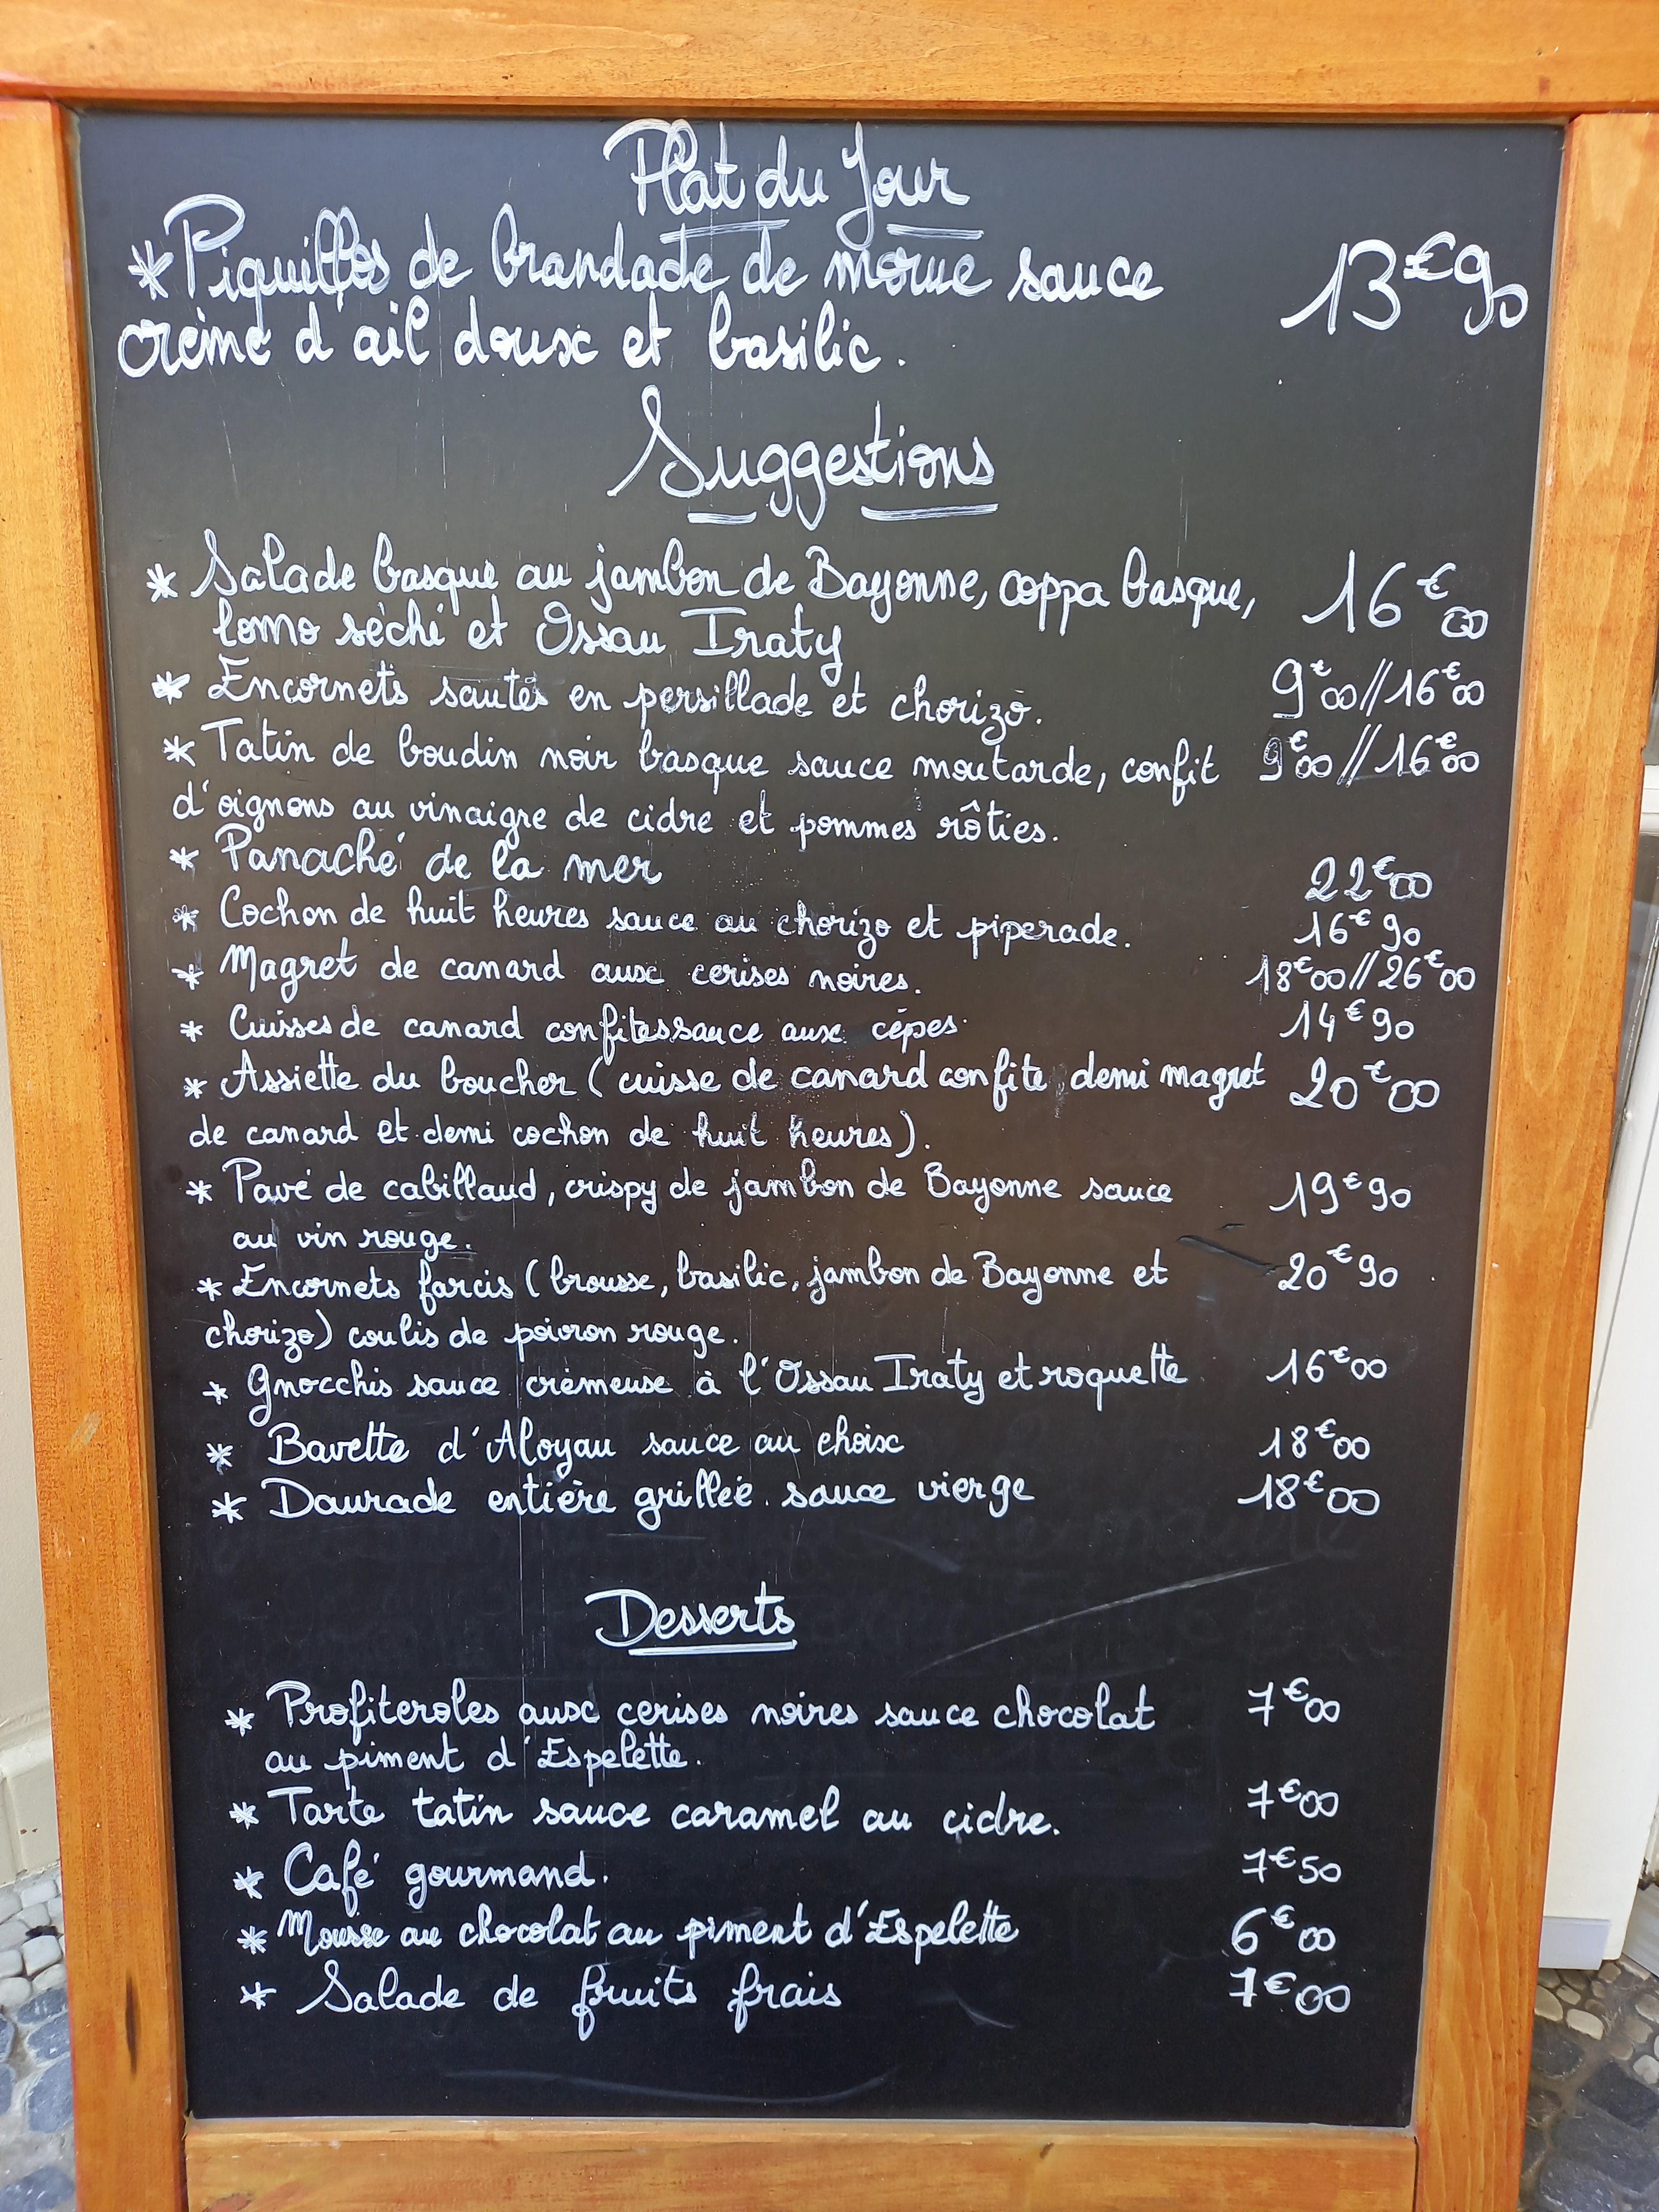 Plat du Jour
*Piquillos de brandade de morue sauce 13€90
crème d'ail doux et basilic.
Suggestions
* Salade basque au jambon de Bayonne, coppa basque, 16€00
lomo séché et Ossau Iraty
* Encornets sautés en persillade et chorizo. 9€00//16€00
* Tatin de boudin noir basque sauce moutarde, confit 9€00//16€00
d'oignons au vinaigre de cidre et pommes rôties.
* Panaché de la mer 22€00
* Cochon de huit heures sauce au chorizo et piperade. 16€90
* Magret de canard aux cerises noires. 18€00//26€00
* Cuisses de canard confites sauce aux cépes. 14€90
* Assiette du boucher (cuisse de canard confite, demi magret 20€00
de canard et demi cochon de huit heures).
* Pavé de cabillaud, crispy de jambon de Bayonne sauce 19€90
au vin rouge.
* Encornets farcis (brousse, basilic, jambon de Bayonne et 20€90
chorizo) coulis de poivron rouge.
* Gnocchis sauce crèmeuse à l'Ossau Iraty et roquette 16€00
* Bavette d'Aloyau sauce au choix 18€00
* Daurade entière grillée sauce vierge 18€00
Desserts
* Profiteroles aux cerises noires sauce chocolat 7€00
au piment d'Espelette.
* Tarte tatin sauce caramel au cidre. 7€00
* Café gourmand. 7€50
* Mousse au chocolat au piment d'Espelette 6€00
* Salade de fruits frais 7€00